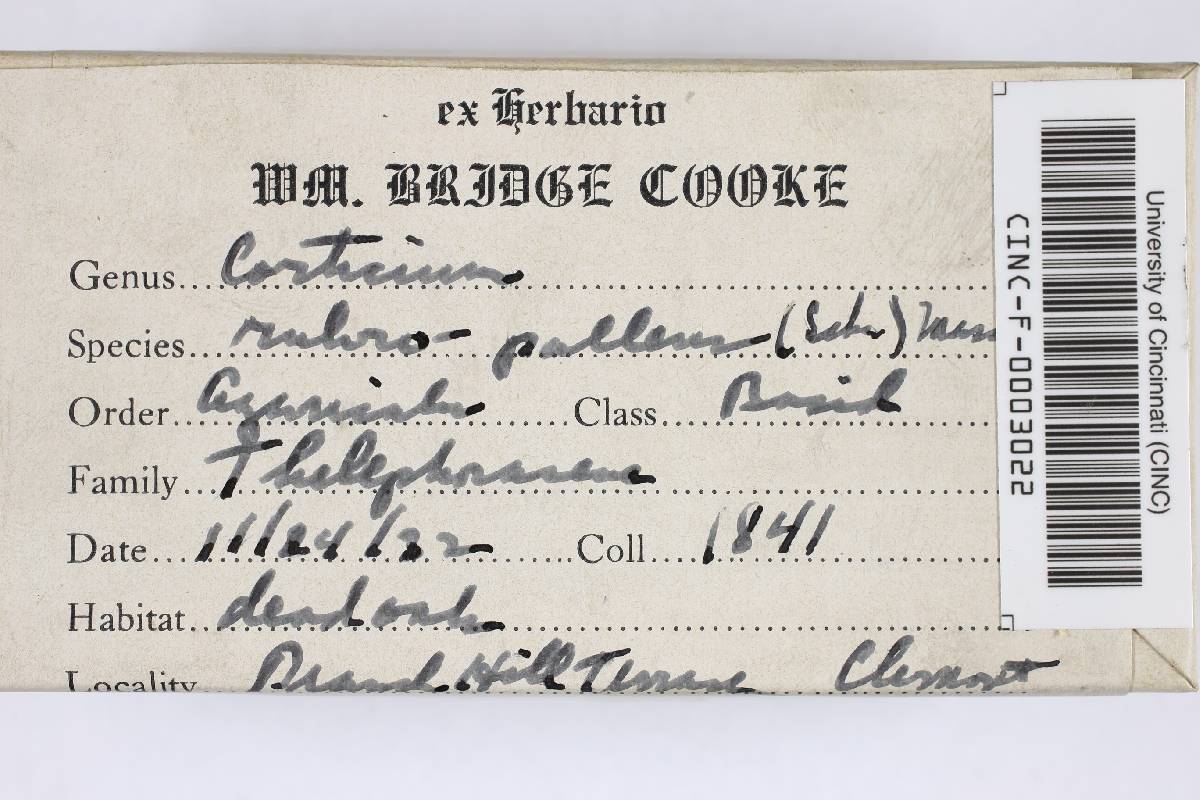 ex Herbario
WM. BRIDGE COOKE
Genus Corticium
Species rubro-pallens (Schw)
Order Agaricales Class Basid
Family Thelephoraceae
Date 11/24/22 Coll 1841
Habitat dead oak
Locality Branch Hill Terrace Clermont
CINC-F-0003022
University of Cincinnati (CINC)